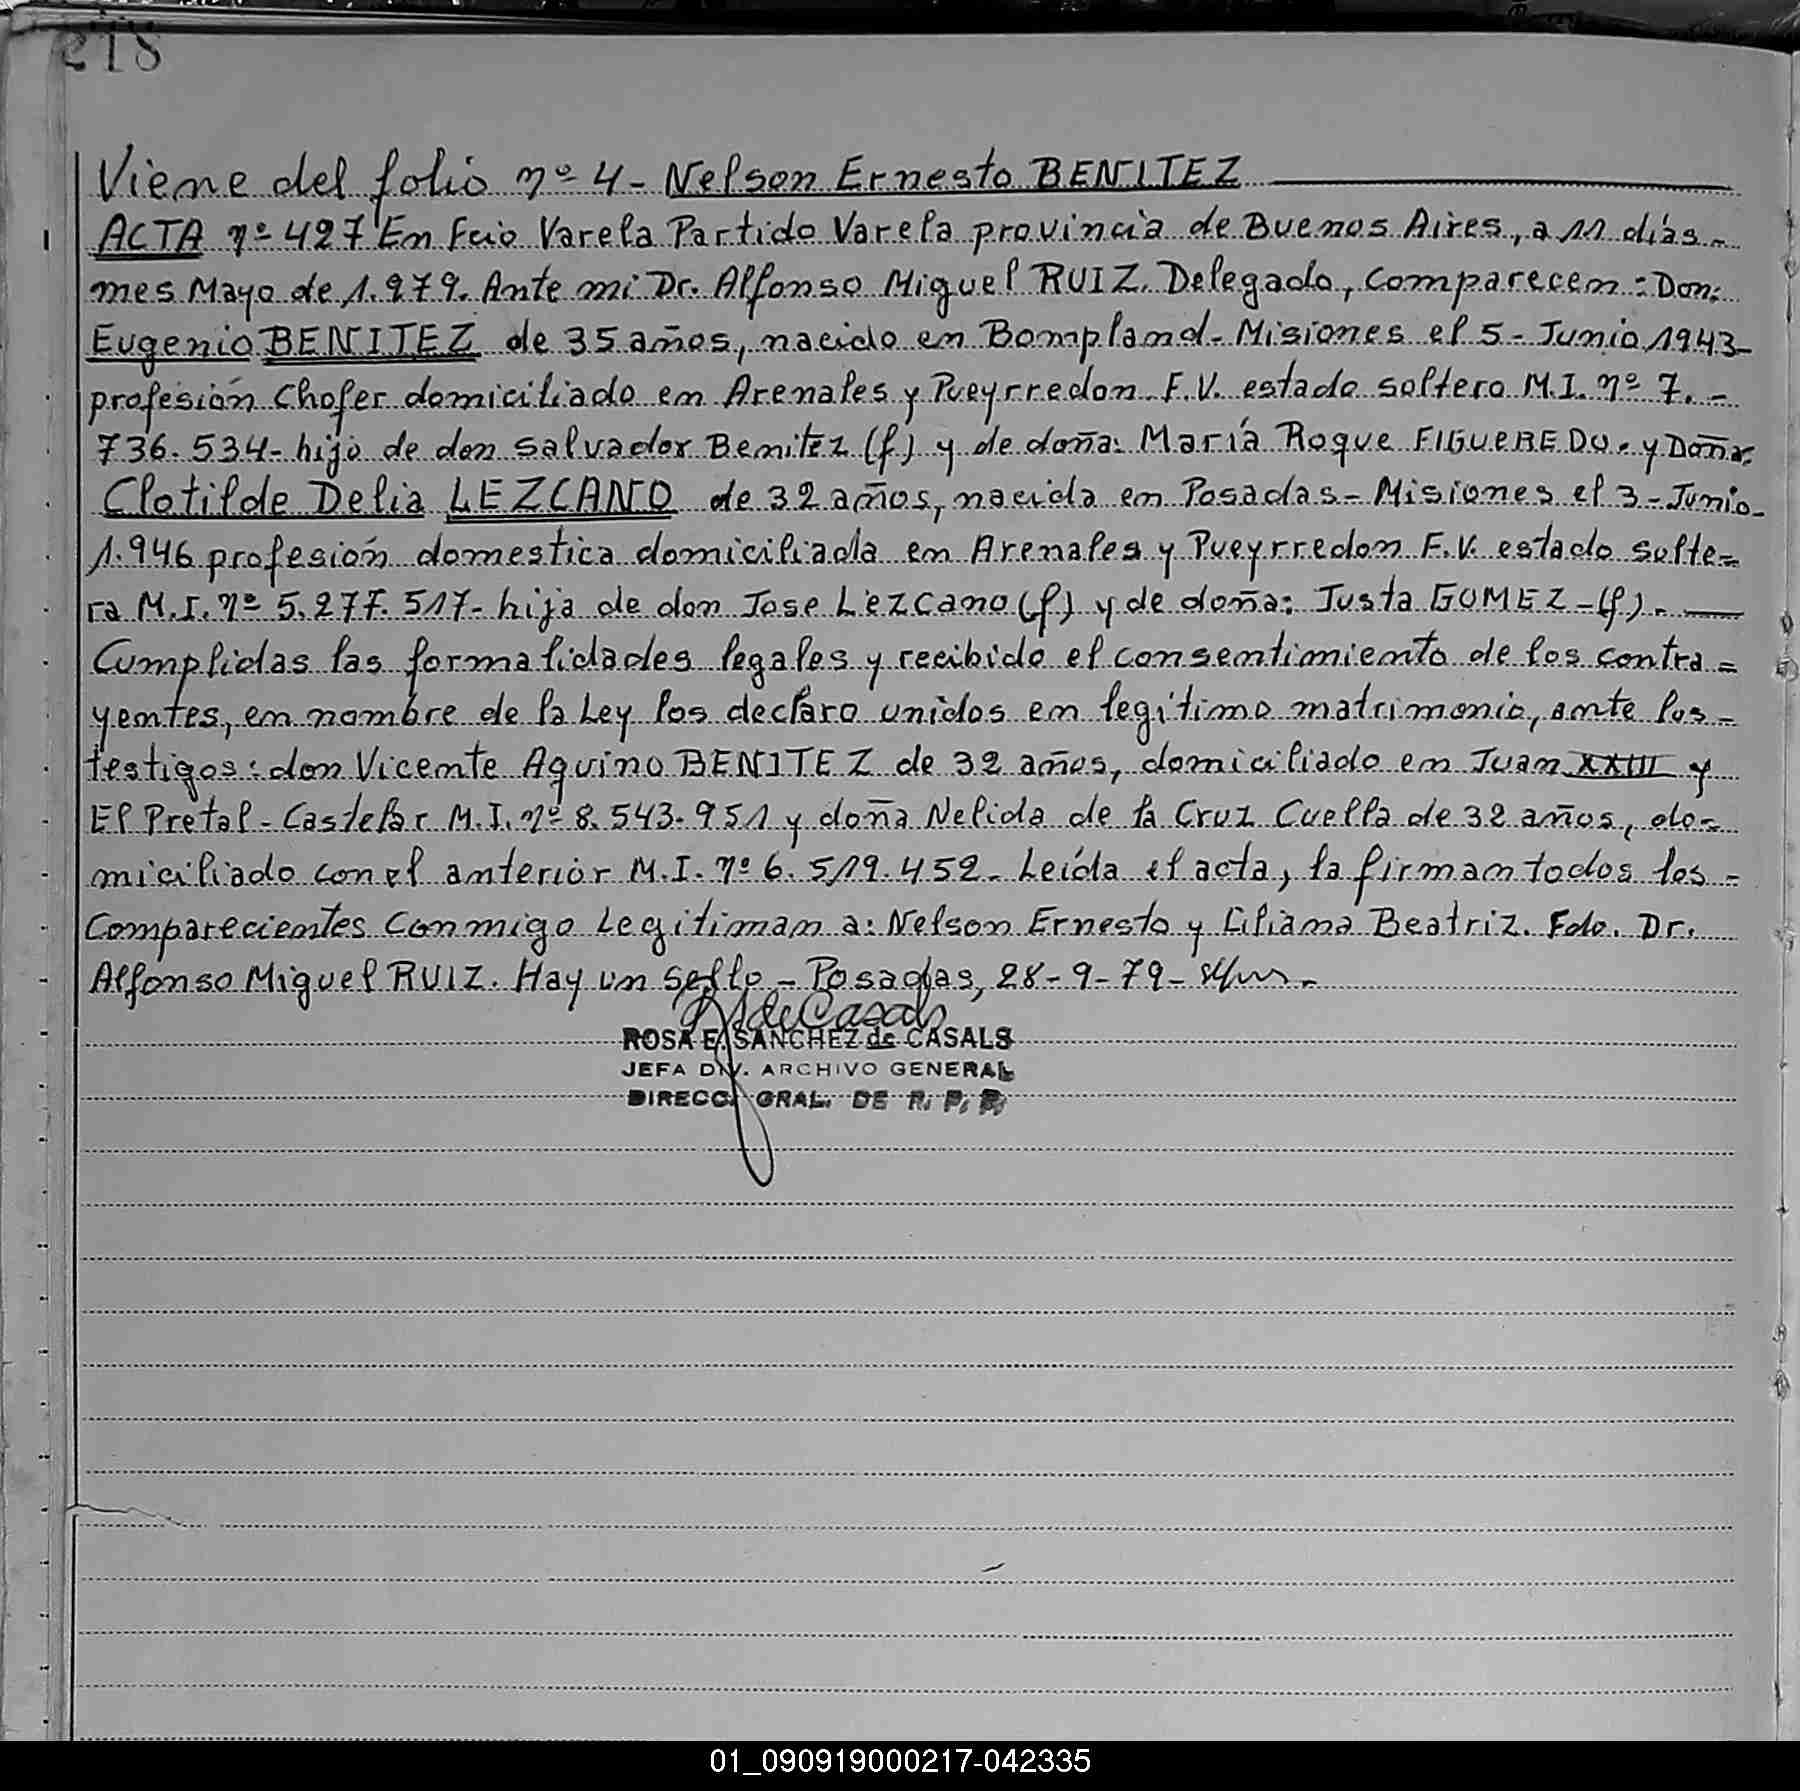 278
Viene del folio nº 4 - Nelson Ernesto BENITEZ
ACTA nº 427 En Fcio Varela Partido Varela provincia de Buenos Aires, a 11 días -
mes Mayo de 1.979. Ante mi Dr. Alfonso Miguel RUIZ. Delegado, comparecen: Don:
Eugenio BENITEZ de 35 años, nacido en Bompland - Misiones el 5 - Junio 1943 -
profesión Chofer domiciliado en Arenales y Pueyrredon. F.V. estado soltero M.I. nº 7. -
736.534 - hijo de don Salvador Benitez (f) y de doña: María Roque FIGUEREDO. y Doña:
Clotilde Delia LEZCANO de 32 años, nacida en Posadas - Misiones el 3 - Junio -
1.946 profesión domestica domiciliada en Arenales y Pueyrredon F.V. estado solte=
ra M.I. nº 5.277.517 - hija de don Jose Lezcano (f) y de doña: Justa GOMEZ - (f). -
Cumplidas las formalidades legales y recibido el consentimiento de los contra =
yentes, en nombre de la Ley los declaro unidos en legítimo matrimonio, ante los -
testigos: don Vicente Aquino BENITEZ de 32 años, domiciliado en Juan XXIII y
El Pretal - Castelar M.I. nº 8.543.951 y doña Nelida de la Cruz Cuella de 32 años, do=
miciliado con el anterior M.I. nº 6.519.452 - Leída el acta, la firman todos los -
Comparecientes conmigo Legitiman a: Nelson Ernesto y Liliana Beatriz. Fdo. Dr.
Alfonso Miguel RUIZ. Hay un sello - Posadas, 28 - 9 - 79 -
ROSA E. SANCHEZ de CASALS
JEFA DIV. ARCHIVO GENERAL
DIRECC. GRAL. DE R. P. P.
01_090919000217-042335